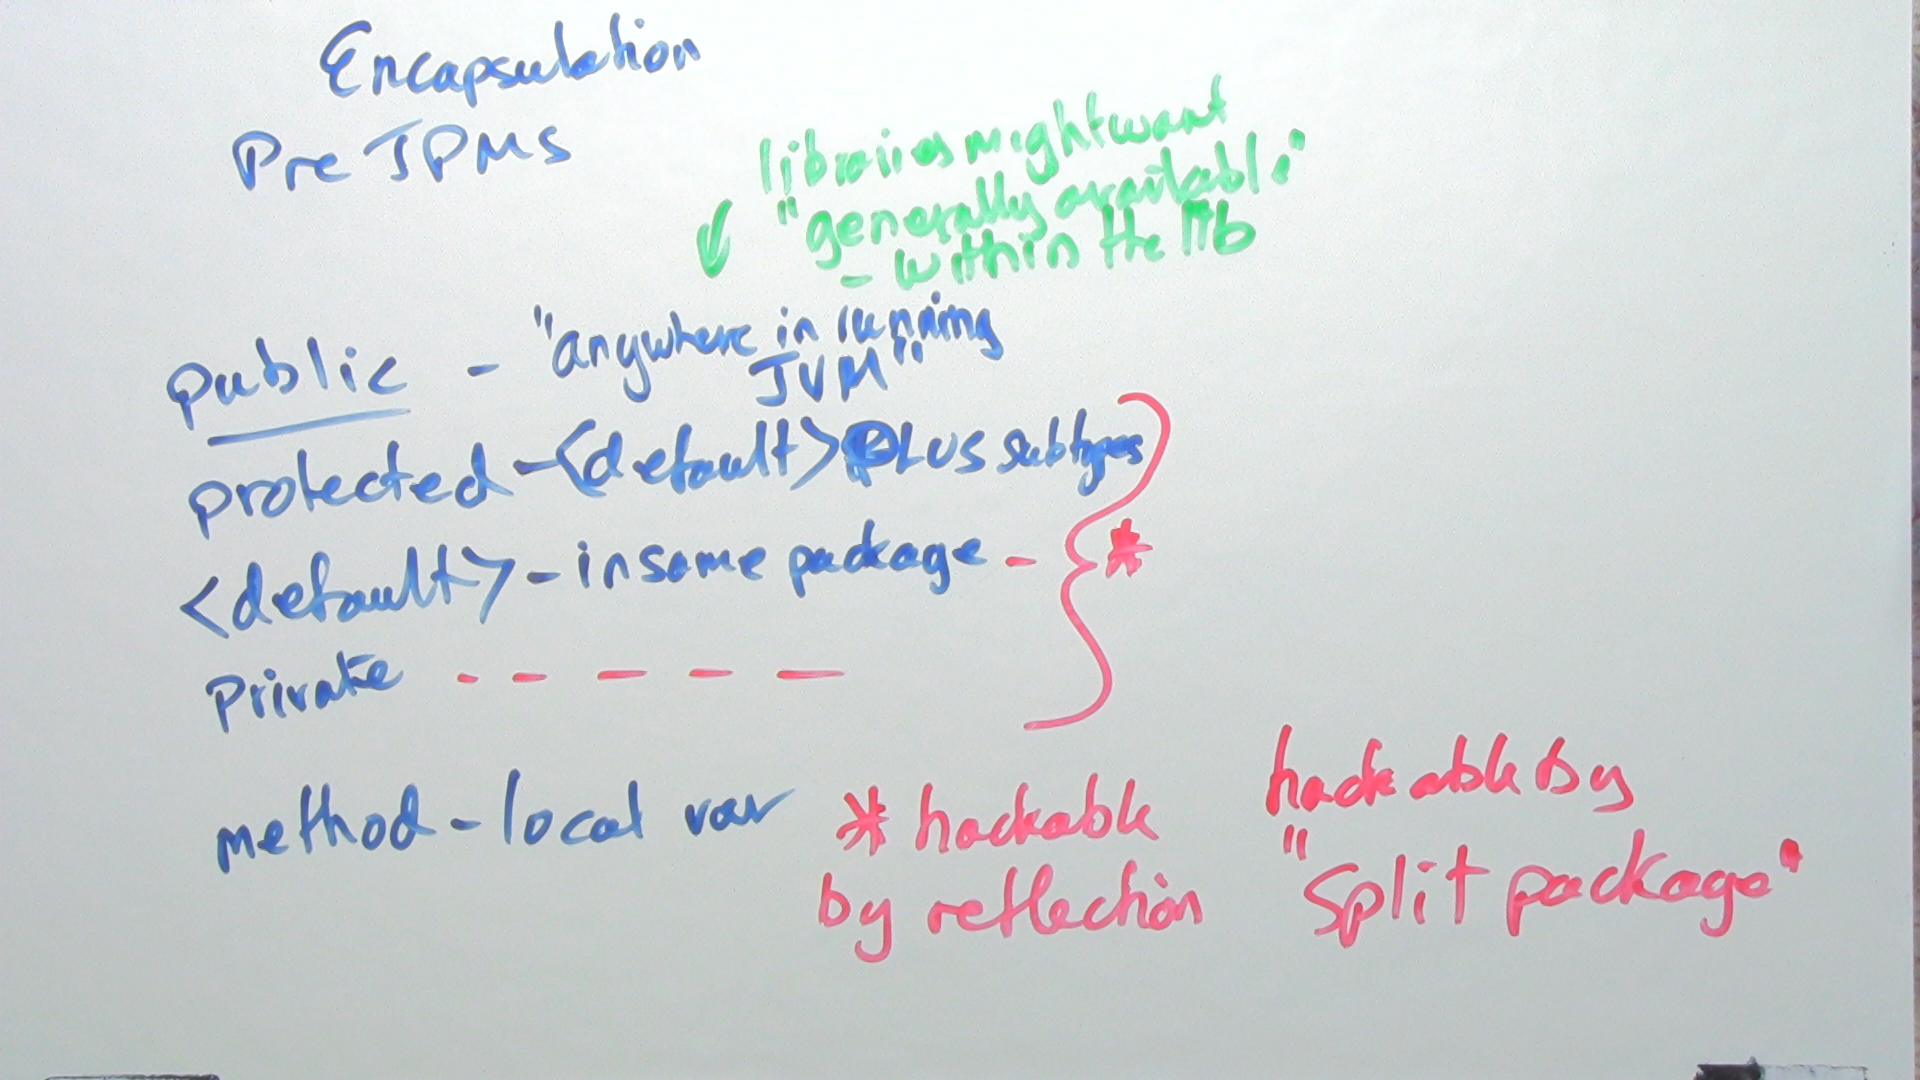 Encapsulation
Pre JPMS
libraries might want
"generally available"
- within the lib
public - "anywhere in running
JVM"
protected - <default> PLUS subtypes
<default> - in same package - *
Private - - - - -
method - local var
* hackable
by reflection
hackable by
"Split package"